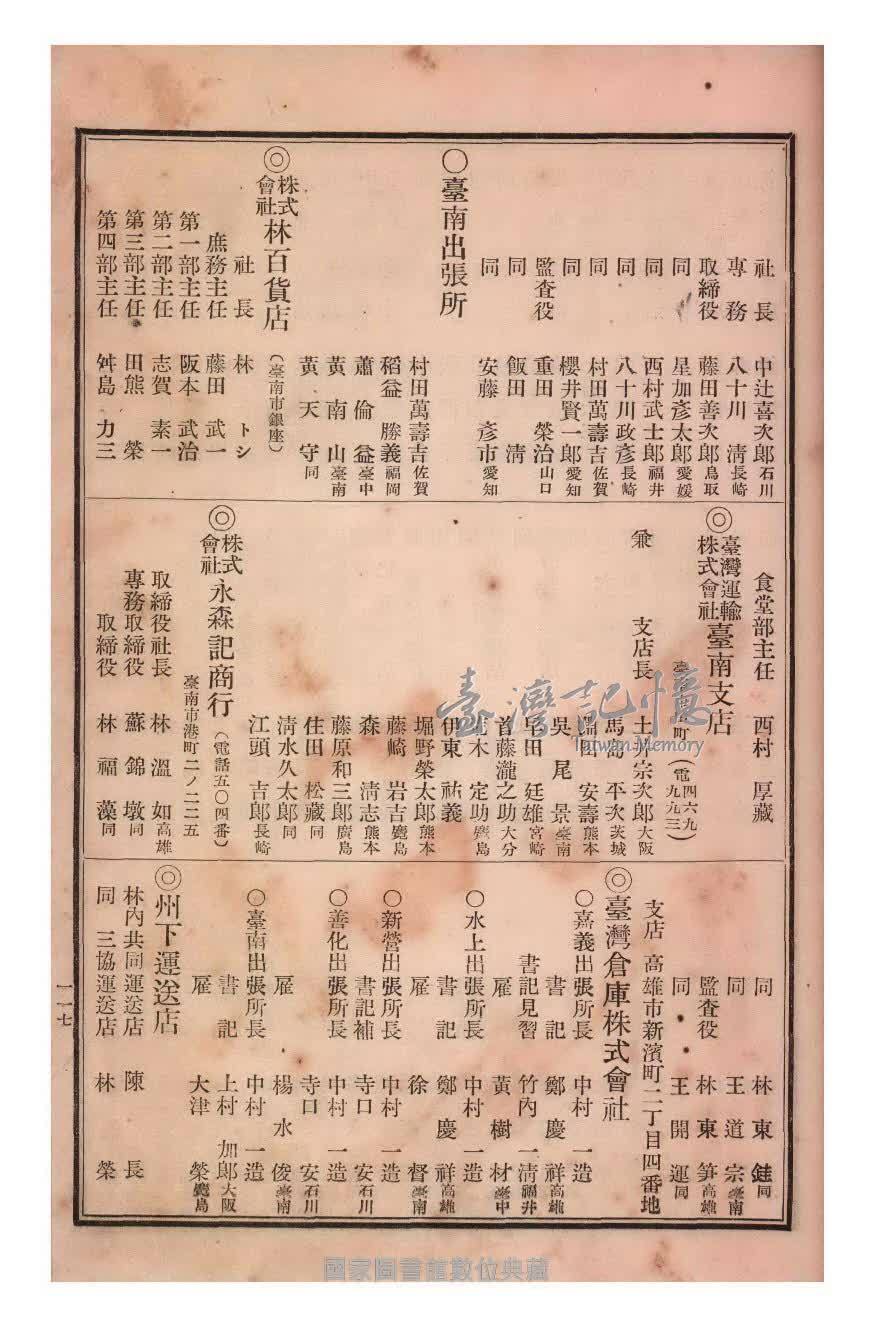 社長 中辻喜次郎 石川
專務 八十川 清 長崎
取締役 藤田善次郎 鳥取
同 星加彥太郎 愛媛
同 西村武士郎 福井
同 八十川政彥 長崎
同 村田萬壽吉 佐賀
同 櫻井賢一郎 愛知
監査役 重田 榮治 山口
同 飯田 清
同 安藤 彥市 愛知
○臺南出張所
村田萬壽吉 佐賀
稻益 勝義 福岡
蕭 倫 益 臺中
黃 南 山 臺南
黃 天 守 同
◎株式會社林百貨店
(臺南市銀座)
社長 林 トシ
庶務主任 藤田 武一
第一部主任 阪本 武治
第二部主任 志賀 素一
第三部主任 田熊 榮
第四部主任 舛島 力三
食堂部主任 西村 厚藏
◎臺灣運輸株式會社臺南支店
町(電四六九 九九三)
兼 支店長 土井宗次郎 大阪
馬 平次 茨城
田 安壽 熊本
吳 尾 景 臺南
早田 廷雄 宮崎
首藤瀧之助 大分
木 定功 鹿島
伊東 祐義
堀野榮太郎 熊本
藤崎 岩吉 鹿島
森 清志 熊本
藤原和三郎 廣島
住田 松藏 同
淸水久太郎 同
江頭 吉郎 長崎
◎株式會社永森記商行(電話五〇四番)
臺南市港町二ノ二二五
取締役社長 林 溫 如 高雄
專務取締役 蘇 錦 墩 同
取締役 林 福 藻 同
同 林 東 同
同 王 道 宗 臺南
監査役 林 東 笋 高雄
同 王 開 運 同
支店 高雄市新濱町二丁目四番地
◎臺灣倉庫株式會社
○嘉義出張所長 中村 一造
書記 鄭 慶 祥 高雄
書記見習 竹內 淸 福井
雇 黃 樹 材 臺中
○水上出張所長 中村 一造
書記 鄭 慶 祥 高雄
雇 徐 督 臺南
○新營出張所長 中村 一造
書記補 寺口 安 石川
○善化出張所長 中村 一造
寺口 安 石川
雇 楊 水 俊 臺南
○臺南出張所長 中村 一造
書記 上村 加郎 大阪
雇 大津 榮 鹿島
◎州下運送店
林內共同運送店 陳 長
同 三協運送店 林 榮
一一七
臺灣記憶
Taiwan Memory
國家圖書館數位典藏